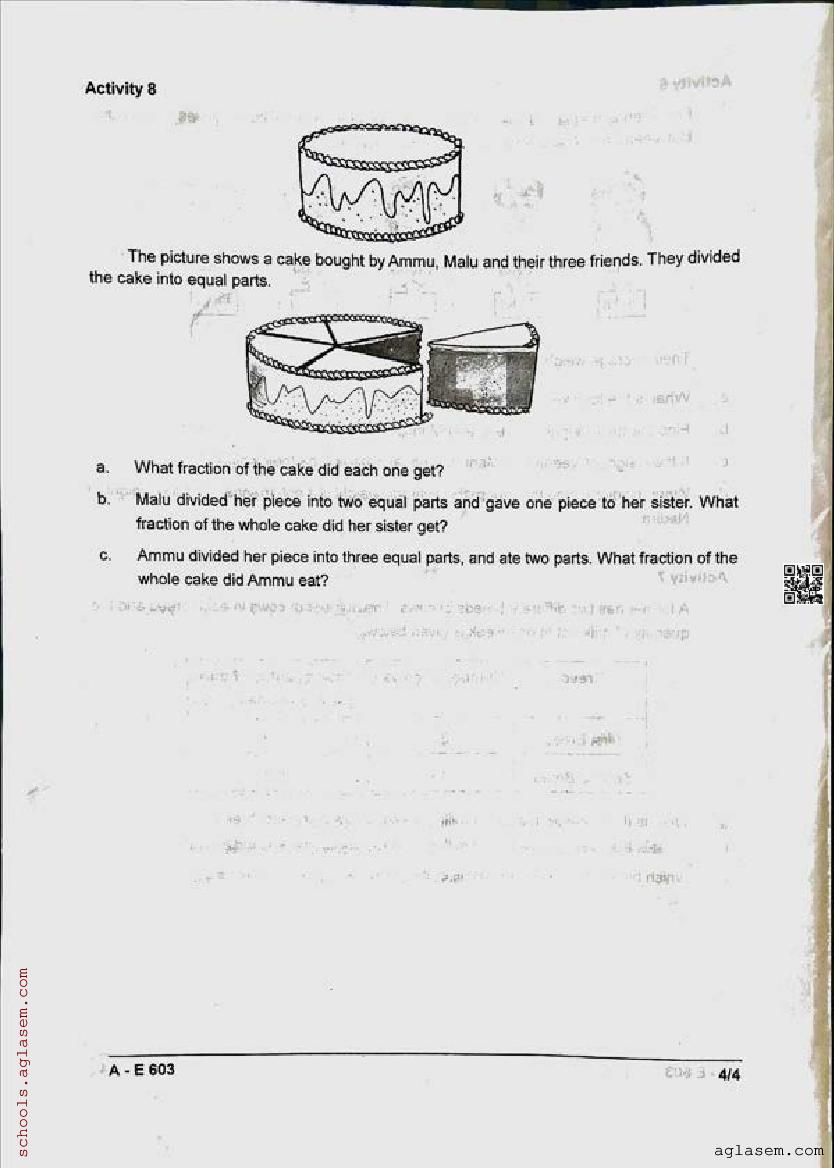 Activity 8
The picture shows a cake bought by Ammu, Malu and their three friends. They divided
the cake into equal parts.
a. What fraction of the cake did each one get?
b. Malu divided her piece into two equal parts and gave one piece to her sister. What
fraction of the whole cake did her sister get?
c. Ammu divided her piece into three equal parts, and ate two parts. What fraction of the
whole cake did Ammu eat?
A - E 603
4/4
schools.aglasem.com
aglasem.com